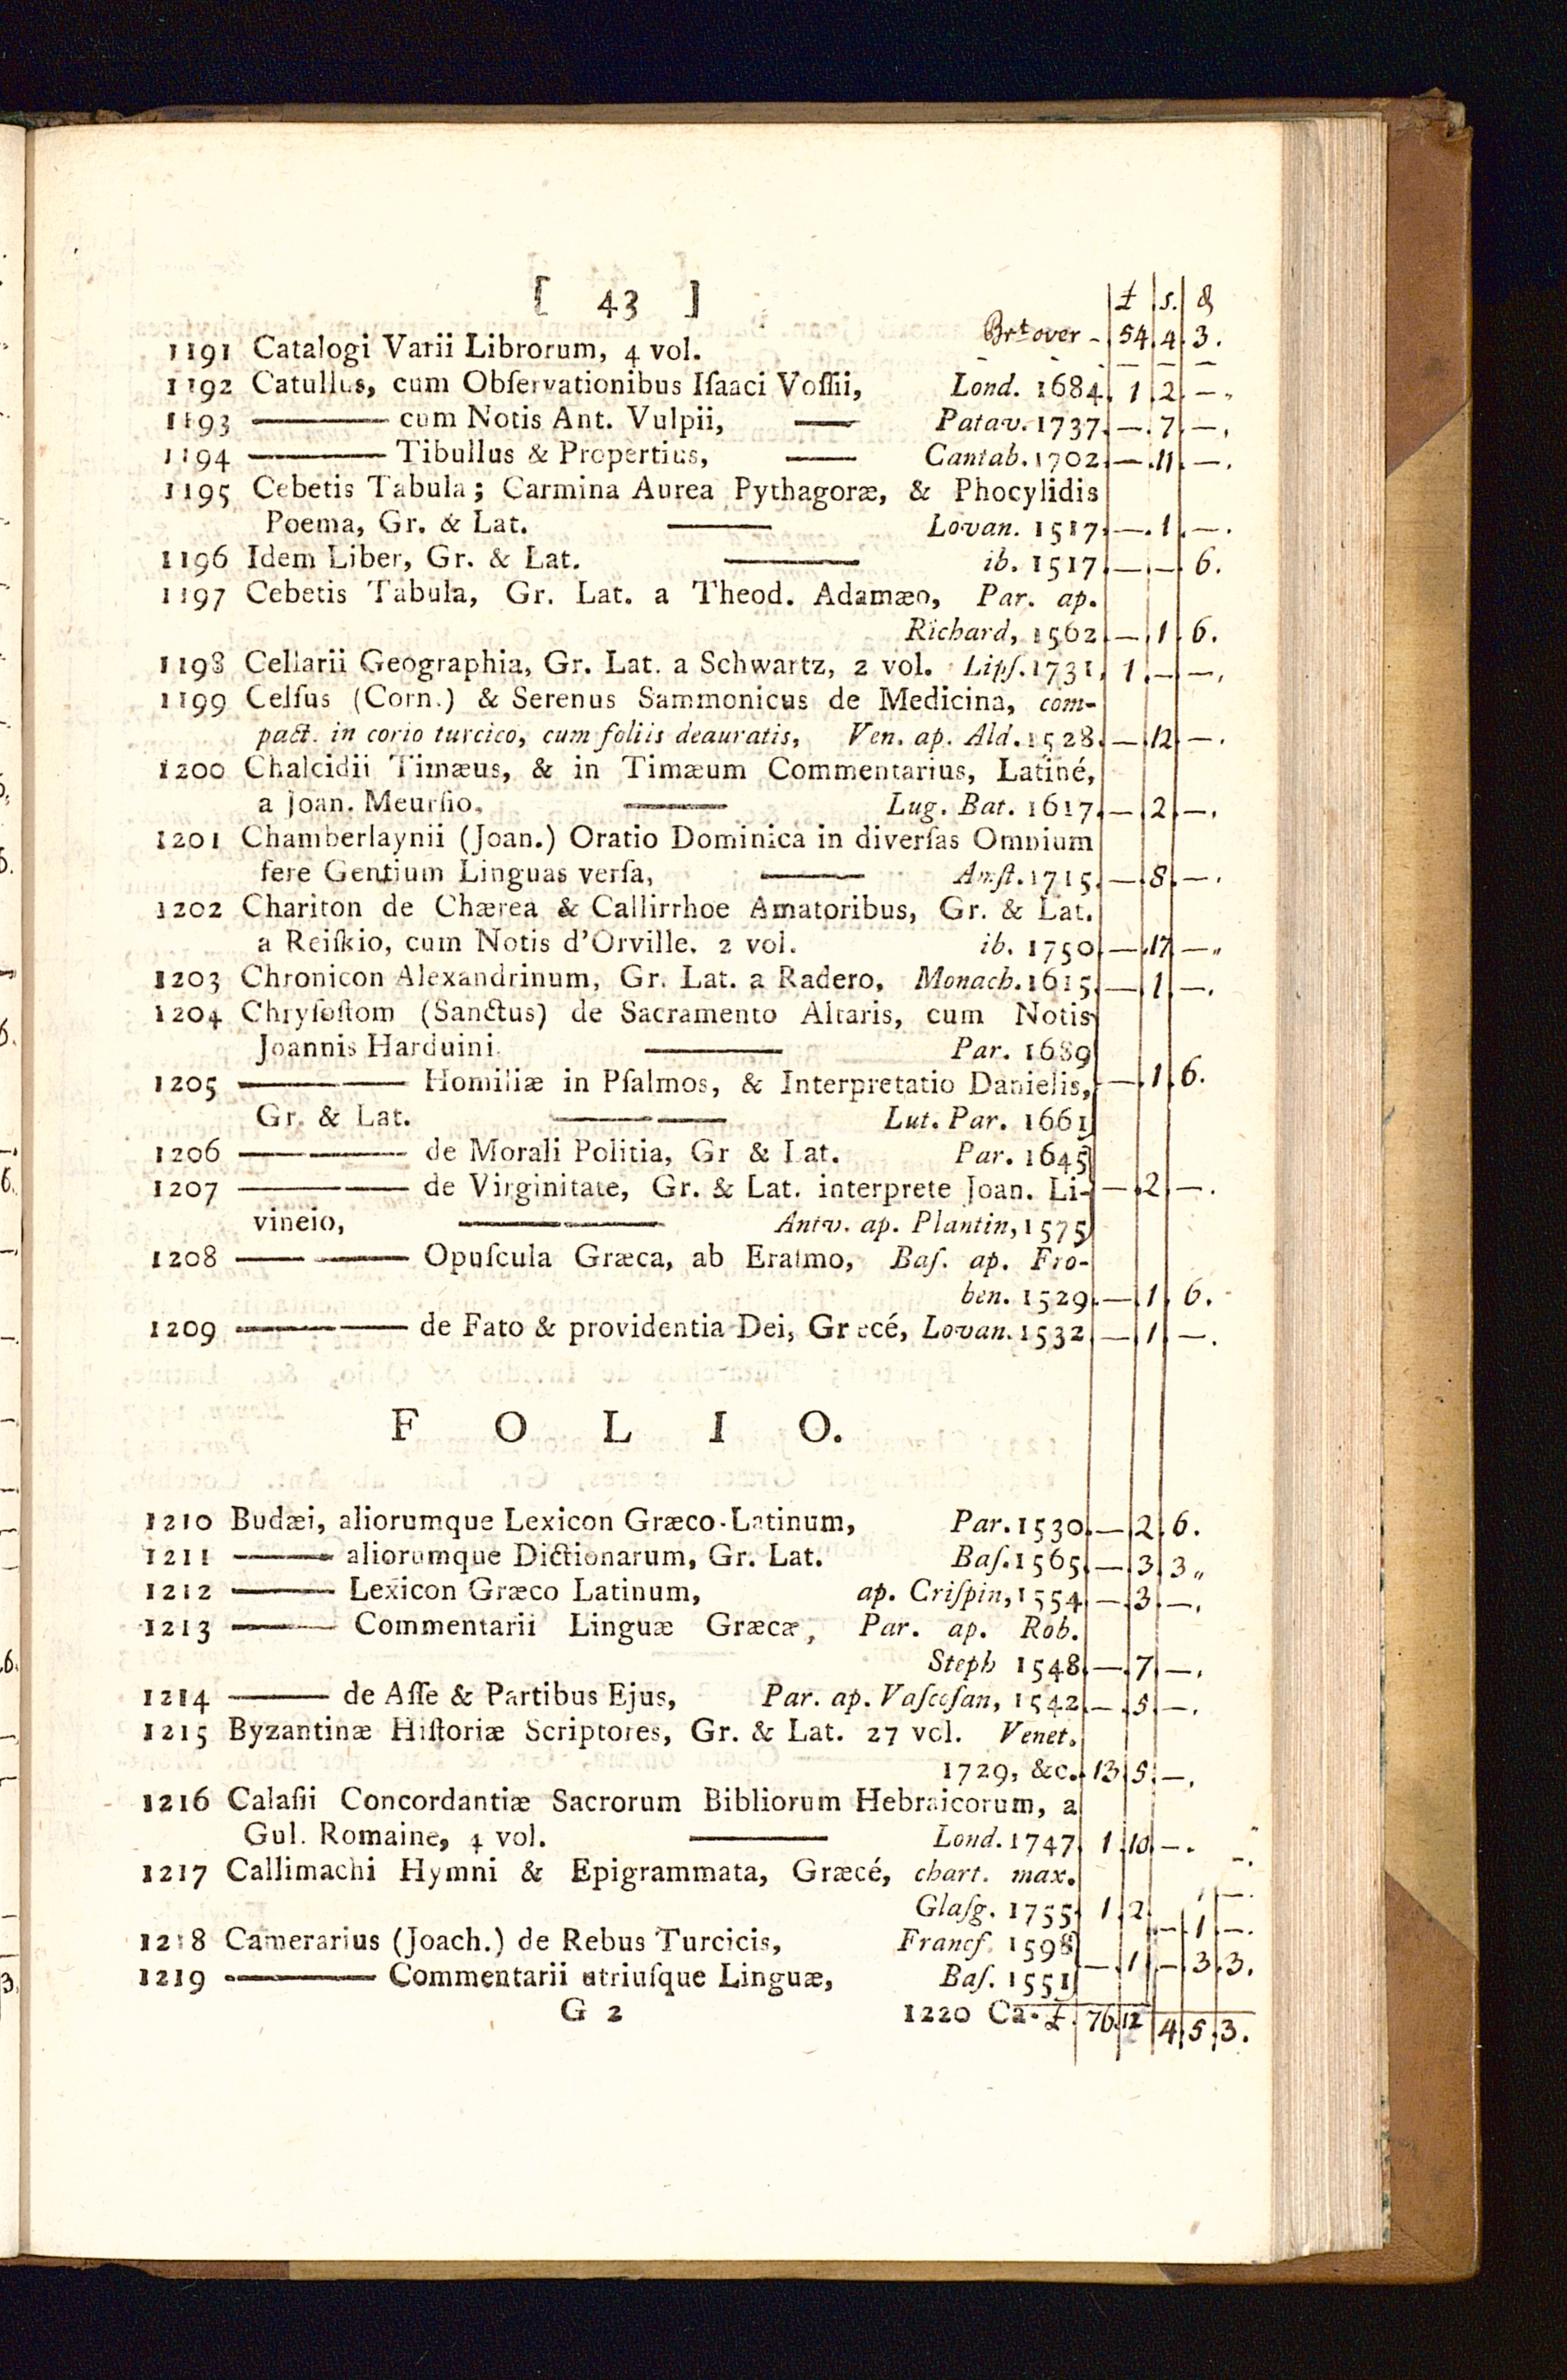 [ 43 ] £ s. d
1191 Catalogi Varii Librorum, 4 vol. Brt over - 54. 4. 3.
1192 Catullus, cum Obſervationibus Iſaaci Voſſii, Lond. 1684. 1. 2. —.
1193 ——— cum Notis Ant. Vulpii, —— Patav. 1737. —. 7. —.
1194 ——— Tibullus & Propertius, —— Cantab. 1702. —. 11. —.
1195 Cebetis Tabula; Carmina Aurea Pythagoræ, & Phocylidis
Poema, Gr. & Lat. ——— Lovan. 1517. —. 1. —.
1196 Idem Liber, Gr. & Lat. ——— ib. 1517. —. —. 6.
1197 Cebetis Tabula, Gr. Lat. a Theod. Adamæo, Par. ap.
Richard, 1562. —. 1. 6.
1198 Cellarii Geographia, Gr. Lat. a Schwartz, 2 vol. Lipſ. 1731. 1. —. —.
1199 Celſus (Corn.) & Serenus Sammonicus de Medicina, com-
pact. in corio turcico, cum foliis deauratis, Ven. ap. Ald. 1528. —. 12. —.
1200 Chalcidii Timæus, & in Timæum Commentarius, Latiné,
a Joan. Meurſio. ——— Lug. Bat. 1617. —. 2. —.
1201 Chamberlaynii (Joan.) Oratio Dominica in diverſas Omnium
fere Gentium Linguas verſa, ——— Amſt. 1715. —. 8. —.
1202 Chariton de Chærea & Callirrhoe Amatoribus, Gr. & Lat.
a Reiſkio, cum Notis d'Orville. 2 vol. ib. 1750. —. 17. —.
1203 Chronicon Alexandrinum, Gr. Lat. a Radero, Monach. 1615. —. 1. —.
1204 Chryſoſtom (Sanctus) de Sacramento Altaris, cum Notis
Joannis Harduini. ——— Par. 1689
1205 ——— Homiliæ in Pſalmos, & Interpretatio Danielis, —. 1. 6.
Gr. & Lat. ——— Lut. Par. 1661
1206 ——— de Morali Politia, Gr & Lat. Par. 1645
1207 ——— de Virginitate, Gr. & Lat. interprete Joan. Li- —. 2. —.
vineio, ——— Antv. ap. Plantin, 1575
1208 ——— Opuſcula Græca, ab Eraſmo, Baſ. ap. Fro-
ben. 1529. —. 1. 6.
1209 ——— de Fato & providentia Dei, Grecé, Lovan. 1532. —. 1. —.
F O L I O.
1210 Budæi, aliorumque Lexicon Græco-Latinum, Par. 1530. —. 2. 6.
1211 ——— aliorumque Dictionarum, Gr. Lat. Baſ. 1565. —. 3. 3.
1212 ——— Lexicon Græco Latinum, ap. Criſpin, 1554. —. 3. —.
1213 ——— Commentarii Linguæ Græcæ, Par. ap. Rob.
Steph 1548. —. 7. —.
1214 ——— de Aſſe & Partibus Ejus, Par. ap. Vaſcoſan, 1542. —. 5. —.
1215 Byzantinæ Hiſtoriæ Scriptores, Gr. & Lat. 27 vol. Venet.
1729, &c. 13. 5. —.
1216 Calaſii Concordantiæ Sacrorum Bibliorum Hebraicorum, a
Gul. Romaine, 4 vol. ——— Lond. 1747. 1. 10. —.
1217 Callimachi Hymni & Epigrammata, Græcé, chart. max.
Glaſg. 1755. 1. 2.
1218 Camerarius (Joach.) de Rebus Turcicis, Francf. 1598 —. 1. —.
1219 ——— Commentarii utriuſque Linguæ, Baſ. 1551 —. 1. —. 3. 3.
G 2 1220 Ca- £. 76. 12 4. 5. 3.